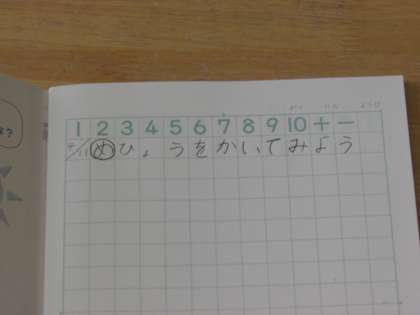 1 2 3 4 5 6 7 8 9 10 + −
めひょうをかいてみよう